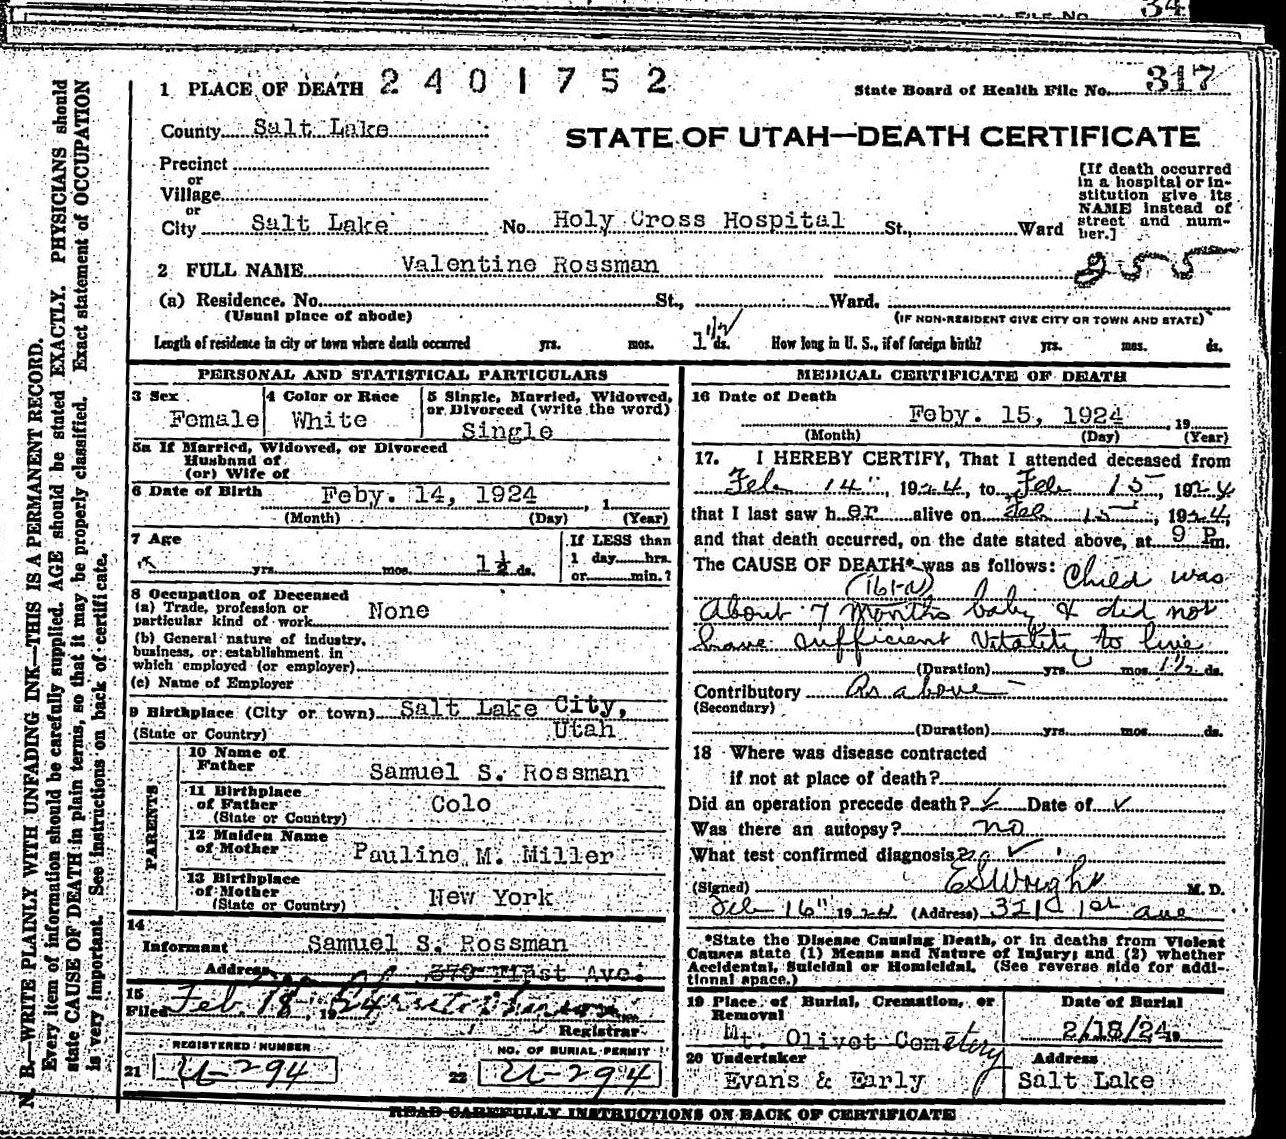 34
FILE No.
1 PLACE OF DEATH 2401752
State Board of Health File No. 317
County Salt Lake
STATE OF UTAH—DEATH CERTIFICATE
Precinct
or
Village
or
City Salt Lake No. Holy Cross Hospital St., Ward
[If death occurred
in a hospital or in-
stitution give its
NAME instead of
street and num-
ber.]
2 FULL NAME Valentine Rossman
255
(a) Residence. No. St., Ward.
(Usual place of abode) (IF NON-RESIDENT GIVE CITY OR TOWN AND STATE)
Length of residence in city or town where death occurred yrs. mos. 1 1/2 ds. How long in U. S., if of foreign birth? yrs. mos. ds.
PERSONAL AND STATISTICAL PARTICULARS
3 Sex Female
4 Color or Race White
5 Single, Married, Widowed,
or Divorced (write the word)
Single
5a If Married, Widowed, or Divorced
Husband of
(or) Wife of
6 Date of Birth Feby. 14, 1924, 1
(Month) (Day) (Year)
7 Age
yrs. mos. 1½ ds.
If LESS than
1 day hrs.
or min.?
8 Occupation of Deceased
(a) Trade, profession or
particular kind of work None
(b) General nature of industry,
business, or establishment in
which employed (or employer)
(c) Name of Employer
9 Birthplace (City or town) Salt Lake City,
(State or Country) Utah
PARENTS
10 Name of
Father Samuel S. Rossman
11 Birthplace
of Father Colo
(State or Country)
12 Maiden Name
of Mother Pauline M. Miller
13 Birthplace
of Mother New York
(State or Country)
14
Informant Samuel S. Rossman
Address 379 First Ave.
15
Filed Feb. 18 1924
Registrar
REGISTERED NUMBER
21 U-294
NO. OF BURIAL PERMIT
22 U-294
MEDICAL CERTIFICATE OF DEATH
16 Date of Death
Feby. 15, 1924, 19
(Month) (Day) (Year)
17. I HEREBY CERTIFY, That I attended deceased from
Feb 14", 1924, to Feb 15, 1924
that I last saw her alive on Feb 15, 1924,
and that death occurred, on the date stated above, at 9 Pm.
The CAUSE OF DEATH* was as follows: Child was
(161-a)
About 7 Months baby & did not
have sufficient Vitality to live
(Duration) yrs. mos. 1½ ds.
Contributory As above
(Secondary)
(Duration) yrs. mos. ds.
18 Where was disease contracted
if not at place of death?
Did an operation precede death? ✓ Date of ✓
Was there an autopsy? no
What test confirmed diagnosis? ✓
(Signed) E S Wright M. D.
Feb 16" 1924 (Address) 321 1st ave
*State the Disease Causing Death, or in deaths from Violent
Causes state (1) Means and Nature of Injury; and (2) whether
Accidental, Suicidal or Homicidal. (See reverse side for addi-
tional space.)
19 Place of Burial, Cremation, or
Removal
Mt. Olivet Cemetery
Date of Burial
2/18/24 19
20 Undertaker
Evans & Early
Address
Salt Lake
READ CAREFULLY INSTRUCTIONS ON BACK OF CERTIFICATE
N. B.—WRITE PLAINLY WITH UNFADING INK—THIS IS A PERMANENT RECORD.
Every item of information should be carefully supplied. AGE should be stated EXACTLY. PHYSICIANS should
state CAUSE OF DEATH in plain terms, so that it may be properly classified. Exact statement of OCCUPATION
is very important. See instructions on back of certificate.